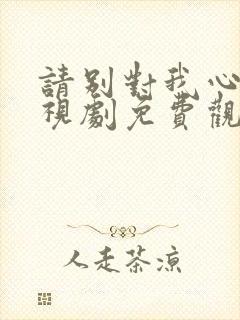 請别對我心
視劇免費觀
人走茶凉